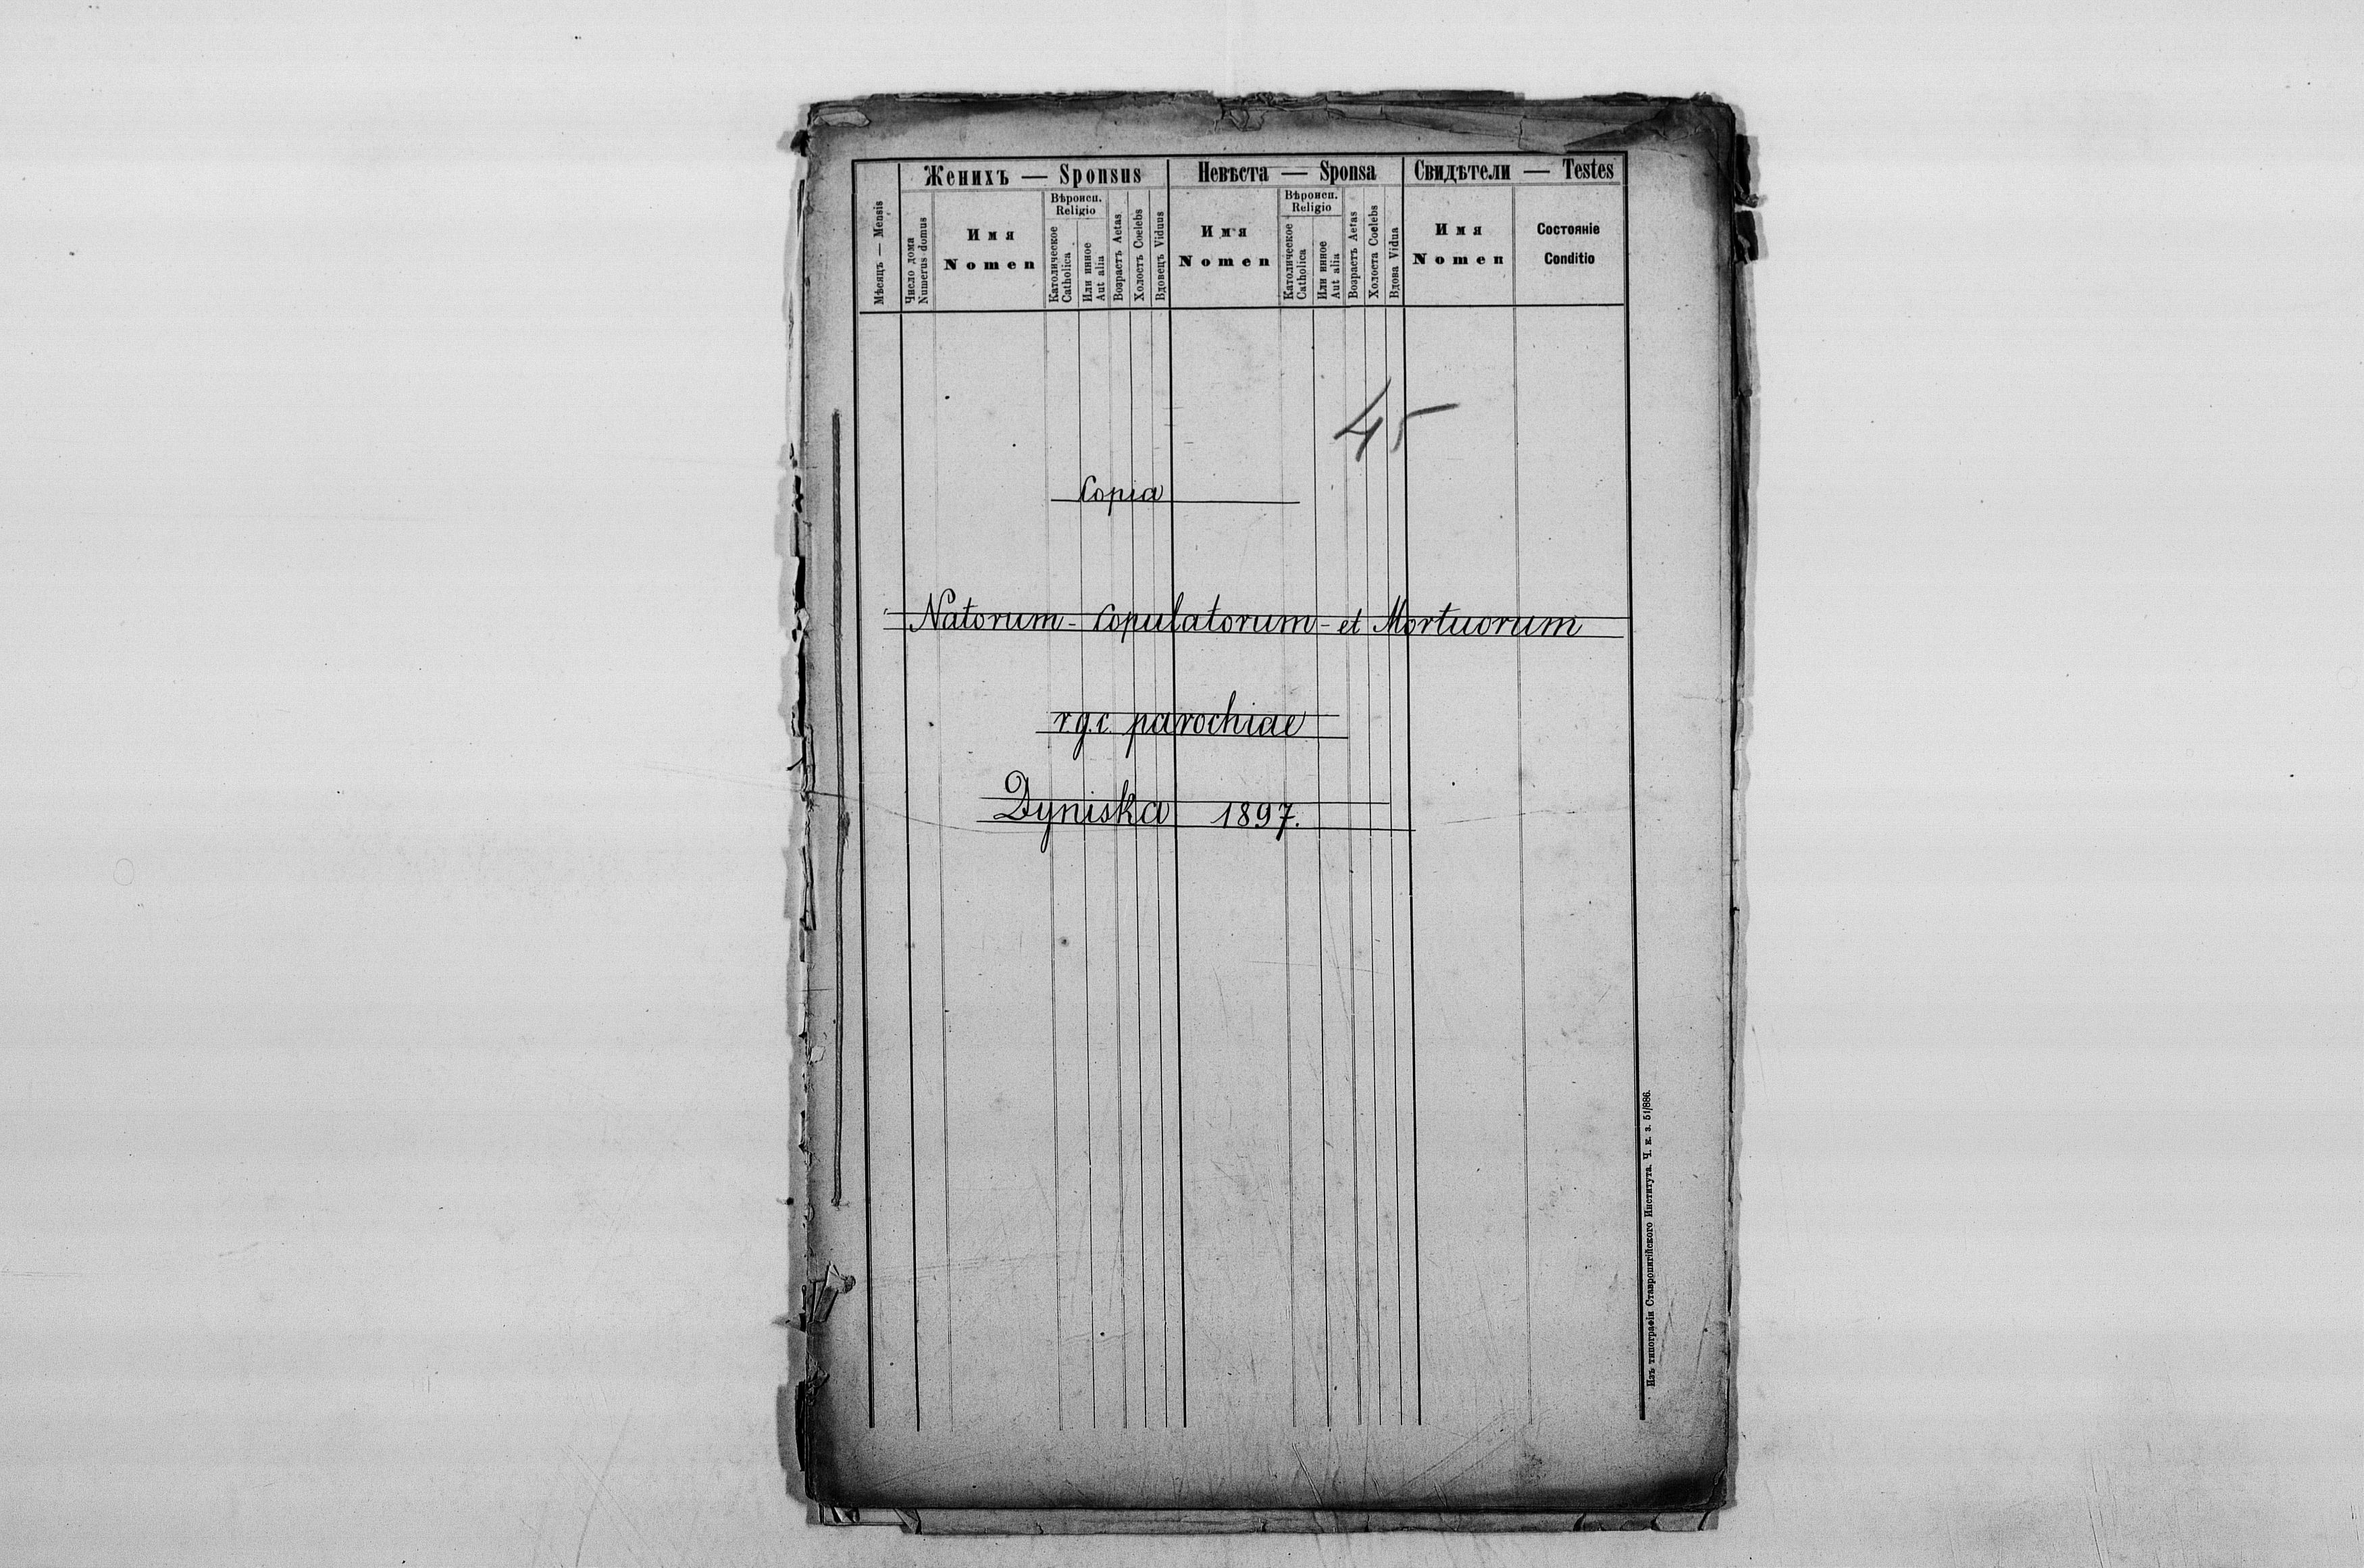 Женихъ — Sponsus
Невѣста — Sponsa
Свидѣтели — Testes
Мѣсяцъ — Mensis
Число дома
Numerus domus
Имя
Nomen
Вѣроисп.
Religio
Католическое
Catholica
Или инное
Aut alia
Возрастъ Aetas
Холостъ Coelebs
Вдовецъ Viduus
Имя
Nomen
Вѣроисп.
Religio
Католическое
Catholica
Или инное
Aut alia
Возрастъ Aetas
Холоста Coelebs
Вдова Vidua
Имя
Nomen
Состоянiе
Conditio
45
Copia
Natorum - Copulatorum - et Mortuorum
r.g.c. parochiae
Dyniska 1897.
Изъ типографіи Ставропигійского Института. Ч. к. з. 51/886.